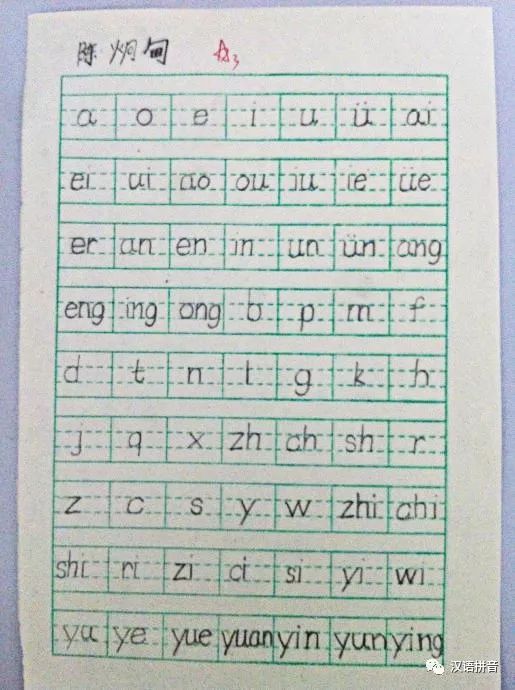 陈炯甸
a o e i u ü ai
ei ui ao ou iu ie üe
er an en in un ün ang
eng ing ong b p m f
d t n l g k h
j q x zh ch sh r
z c s y w zhi chi
shi ri zi ci si yi wi
yu ye yue yuan yin yun ying
汉语拼音